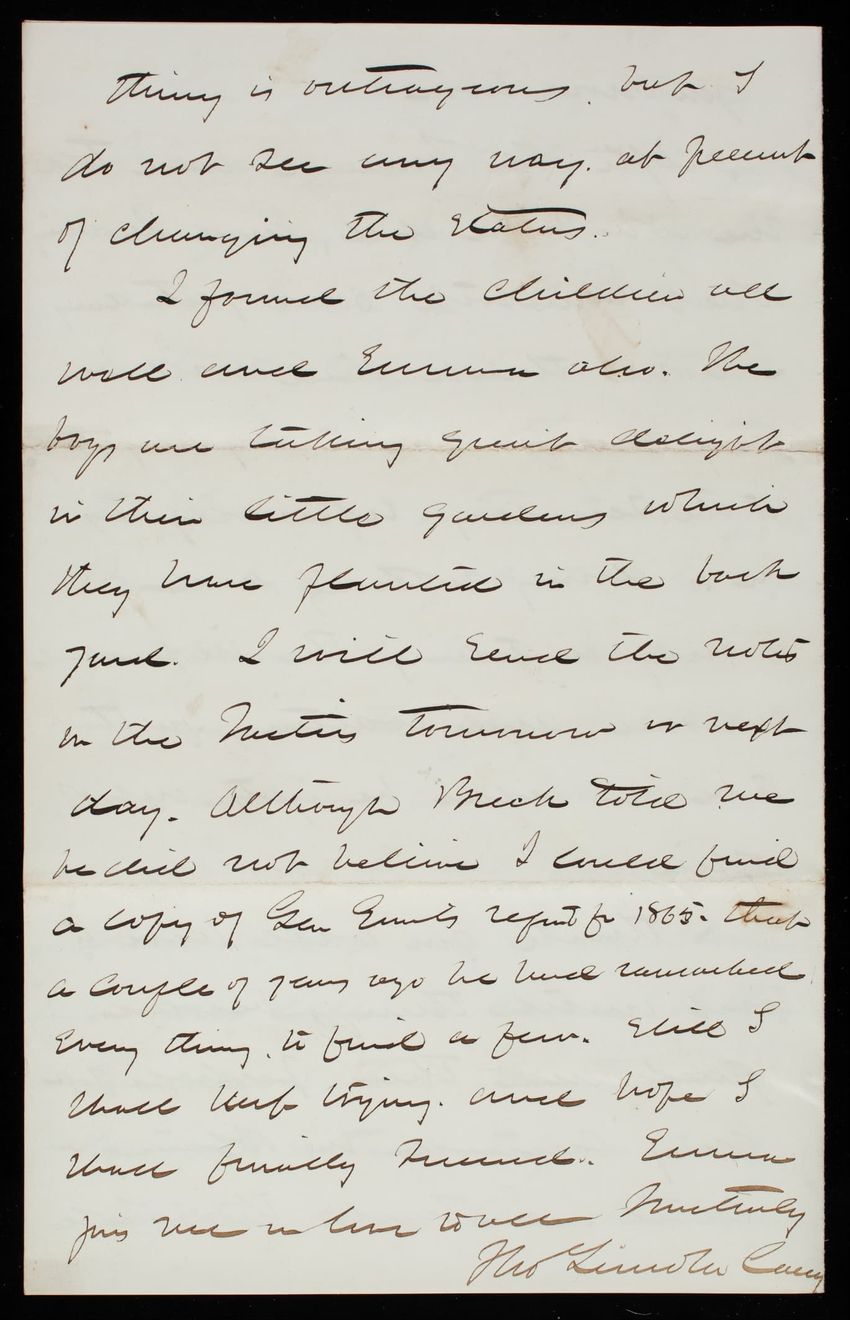 thing is outrageous. but I
do not see any way. at present
of changing the status.
I found the children all
well and Emma also. The
boys are taking great delight
in their little gardens which
they have planted in the back
yard. I will send the notes
on the tomorrow or next
day. Although Breck told me
he did not believe I could find
a copy of Gen report for 1865. that
a couple of years ago he had ransacked
every thing. to find a few. Still I
shall keep trying. and hope I
shall finally succeed. Emma
joins me in love to all truly
Tho Lincoln Casey